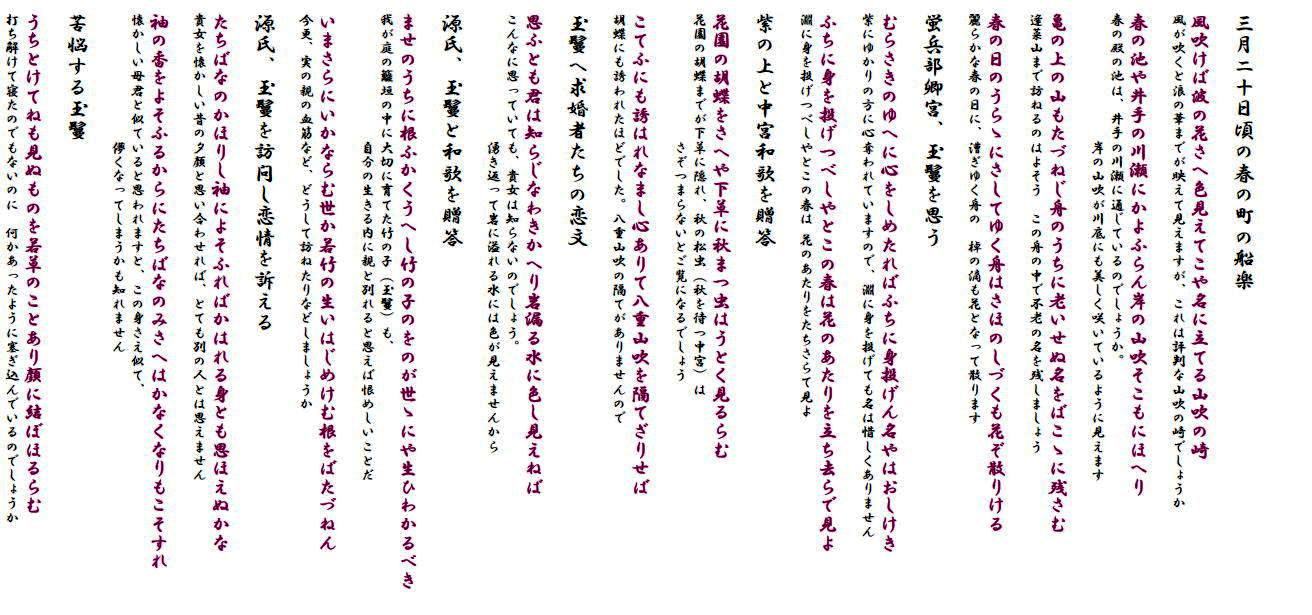 三月二十日頃の春の町の船楽
風吹けば波の花さへ色見えてこや名に立てる山吹の崎
風が吹くと浪の華までが映えて見えますが、これは評判な山吹の崎でしょうか
春の池や井手の川瀬にかよふらん岸の山吹そこもにほへり
春の殿の池は、井手の川瀬に通じているのでしょうか。
岸の山吹が川底にも美しく咲いているように見えます
亀の上の山もたづねじ舟のうちに老いせぬ名をばこゝに残さむ
蓬莱山まで訪ねるのはよそう この舟の中で不老の名を残しましょう
春の日のうらゝにさしてゆく舟はさほのしづくも花ぞ散りける
麗らかな春の日に、漕ぎゆく舟の 棹の滴も花となって散ります
蛍兵部卿宮、 玉鬘を思う
むらさきのゆへに心をしめたればふちに身投げん名やはおしけき
紫にゆかりの方に心奪われていますので、 淵に身を投げても名は惜しくありません
ふちに身を投げつべしやとこの春は花のあたりを立ち去らで見よ
淵に身を投げつべしやとこの春は 花のあたりをたちさらで見よ
紫の上と中宮和歌を贈答
花園の胡蝶をさへや下草に秋まつ虫はうとく見るらむ
花園の胡蝶までが下草に隠れ、秋の松虫（秋を待つ中宮）は
さぞつまらないとご覧になるでしょう
こてふにも誘はれなまし心ありて八重山吹を隔てざりせば
胡蝶にも誘われたほどでした。八重山吹の隔てがありませんので
玉鬘へ求婚者たちの恋文
思ふとも君は知らじなわきかへり岩漏る水に色し見えねば
こんなに思っていても、貴女は知らないのでしょう。
湧き返って岩に溢れる水には色が見えませんから
源氏、玉鬘と和歌を贈答
ませのうちに根ふかくうへし竹の子のをのが世ゝにや生ひわかるべき
我が庭の籬垣の中に大切に育てた竹の子（玉鬘）も、
自分の生きる内に親と別れると思えば恨めしいことだ
いまさらにいかならむ世か若竹の生いはじめけむ根をばたづねん
今更、実の親の血筋など、どうして訪ねたりなどしましょうか
源氏、玉鬘を訪問し恋情を訴える
たちばなのかほりし袖によそふればかはれる身とも思ほえぬかな
貴女を懐かしい昔の夕顔と思い合わせれば、とても別の人とは思えません
袖の香をよそふるからにたちばなのみさへはかなくなりもこそすれ
懐かしい母君と似ていると思われますと、この身さえ似て、
儚くなってしまうかも知れません
苦悩する玉鬘
うちとけてねも見ぬものを若草のことあり顔に結ぼほるらむ
打ち解けて寝たのでもないのに 何かあったように塞ぎ込んでいるのでしょうか